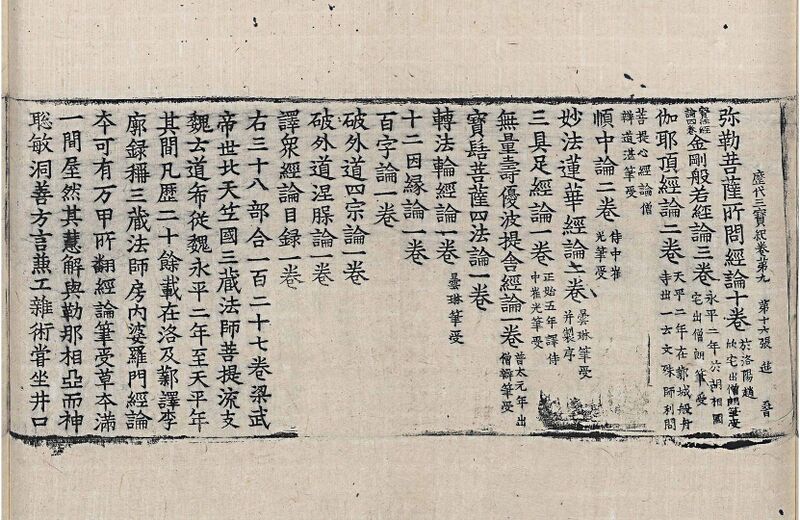 歷代三寶紀卷第九 第十六張 進
弥勒菩薩所問經論十卷 於洛陽趙欣宅出僧朗筆受
寶法經論四卷 金剛般若經論三卷 永平二年於胡相國宅出僧朗筆受
伽耶頂經論二卷 天平二年在鄴城般舟寺出一云文殊師利問菩提心經論僧辯道湛筆受
順中論二卷 侍中崔光筆受
妙法蓮華經論二卷 曇琳筆受并製序
三具足經論一卷 正始五年譯侍中崔光筆受
無量壽優波提舍經論一卷 普太元年出僧辯筆受
寶髻菩薩四法論一卷
轉法輪經論一卷 曇琳筆受
十二因緣論一卷
百字論一卷
破外道四宗論一卷
破外道涅槃論一卷
譯衆經論目録一卷
右三十八部合一百二十七卷梁武
帝世北天竺國三藏法師菩提流支
魏云道希從魏永平二年至天平年
其間凡歷二十餘載在洛及鄴譯李
廓録稱三藏法師房内婆羅門經論
夲可有万甲所翻經論筆受草夲滿
一間屋然其慧解與勒那相亞而神
聡敏洞善方言兼工雜術甞坐井口